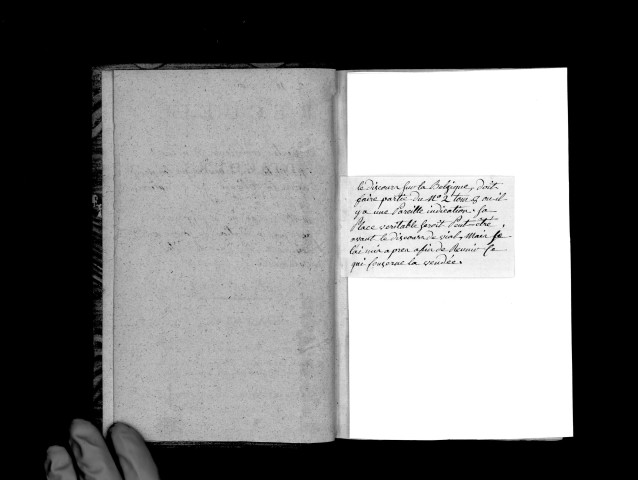 le discours sur la Belgique, doit
faire partie du N.° 2 tom où il
y a une Pareille indication. sa
Place veritable seroit Peut-etre
avant le discours de vial, Mais je
l'ai mis apres afin de Reunir Ce
qui Conserne la vendée.